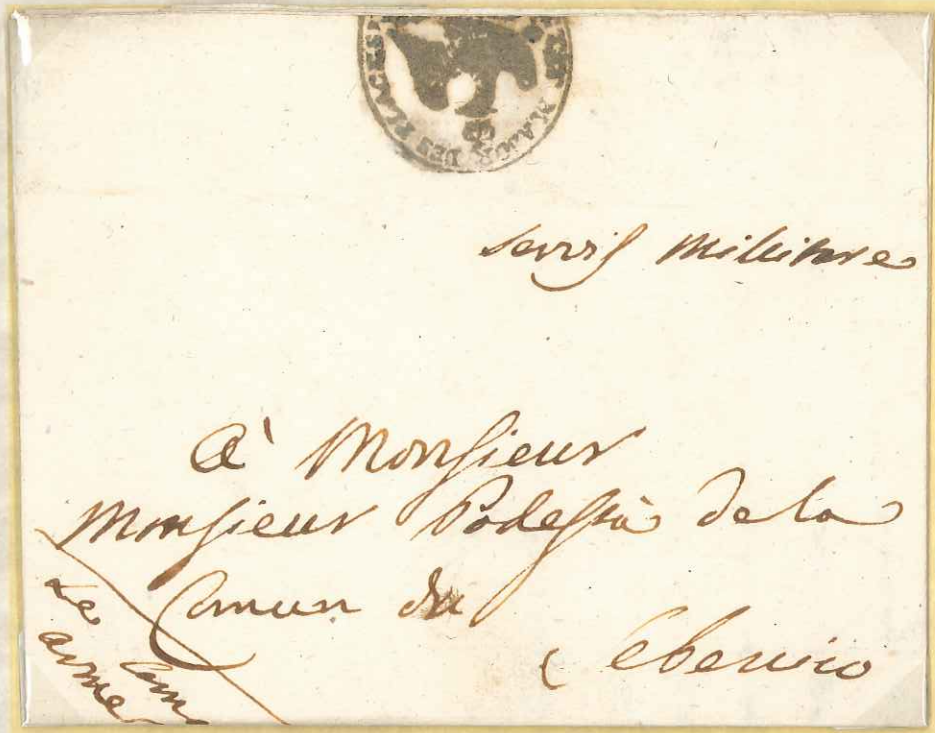 MAJOR DES PLACES
servis millitare
à Monsieur
Monsieur Podestà de la
Comun du
Sebenico
Le Com
arme